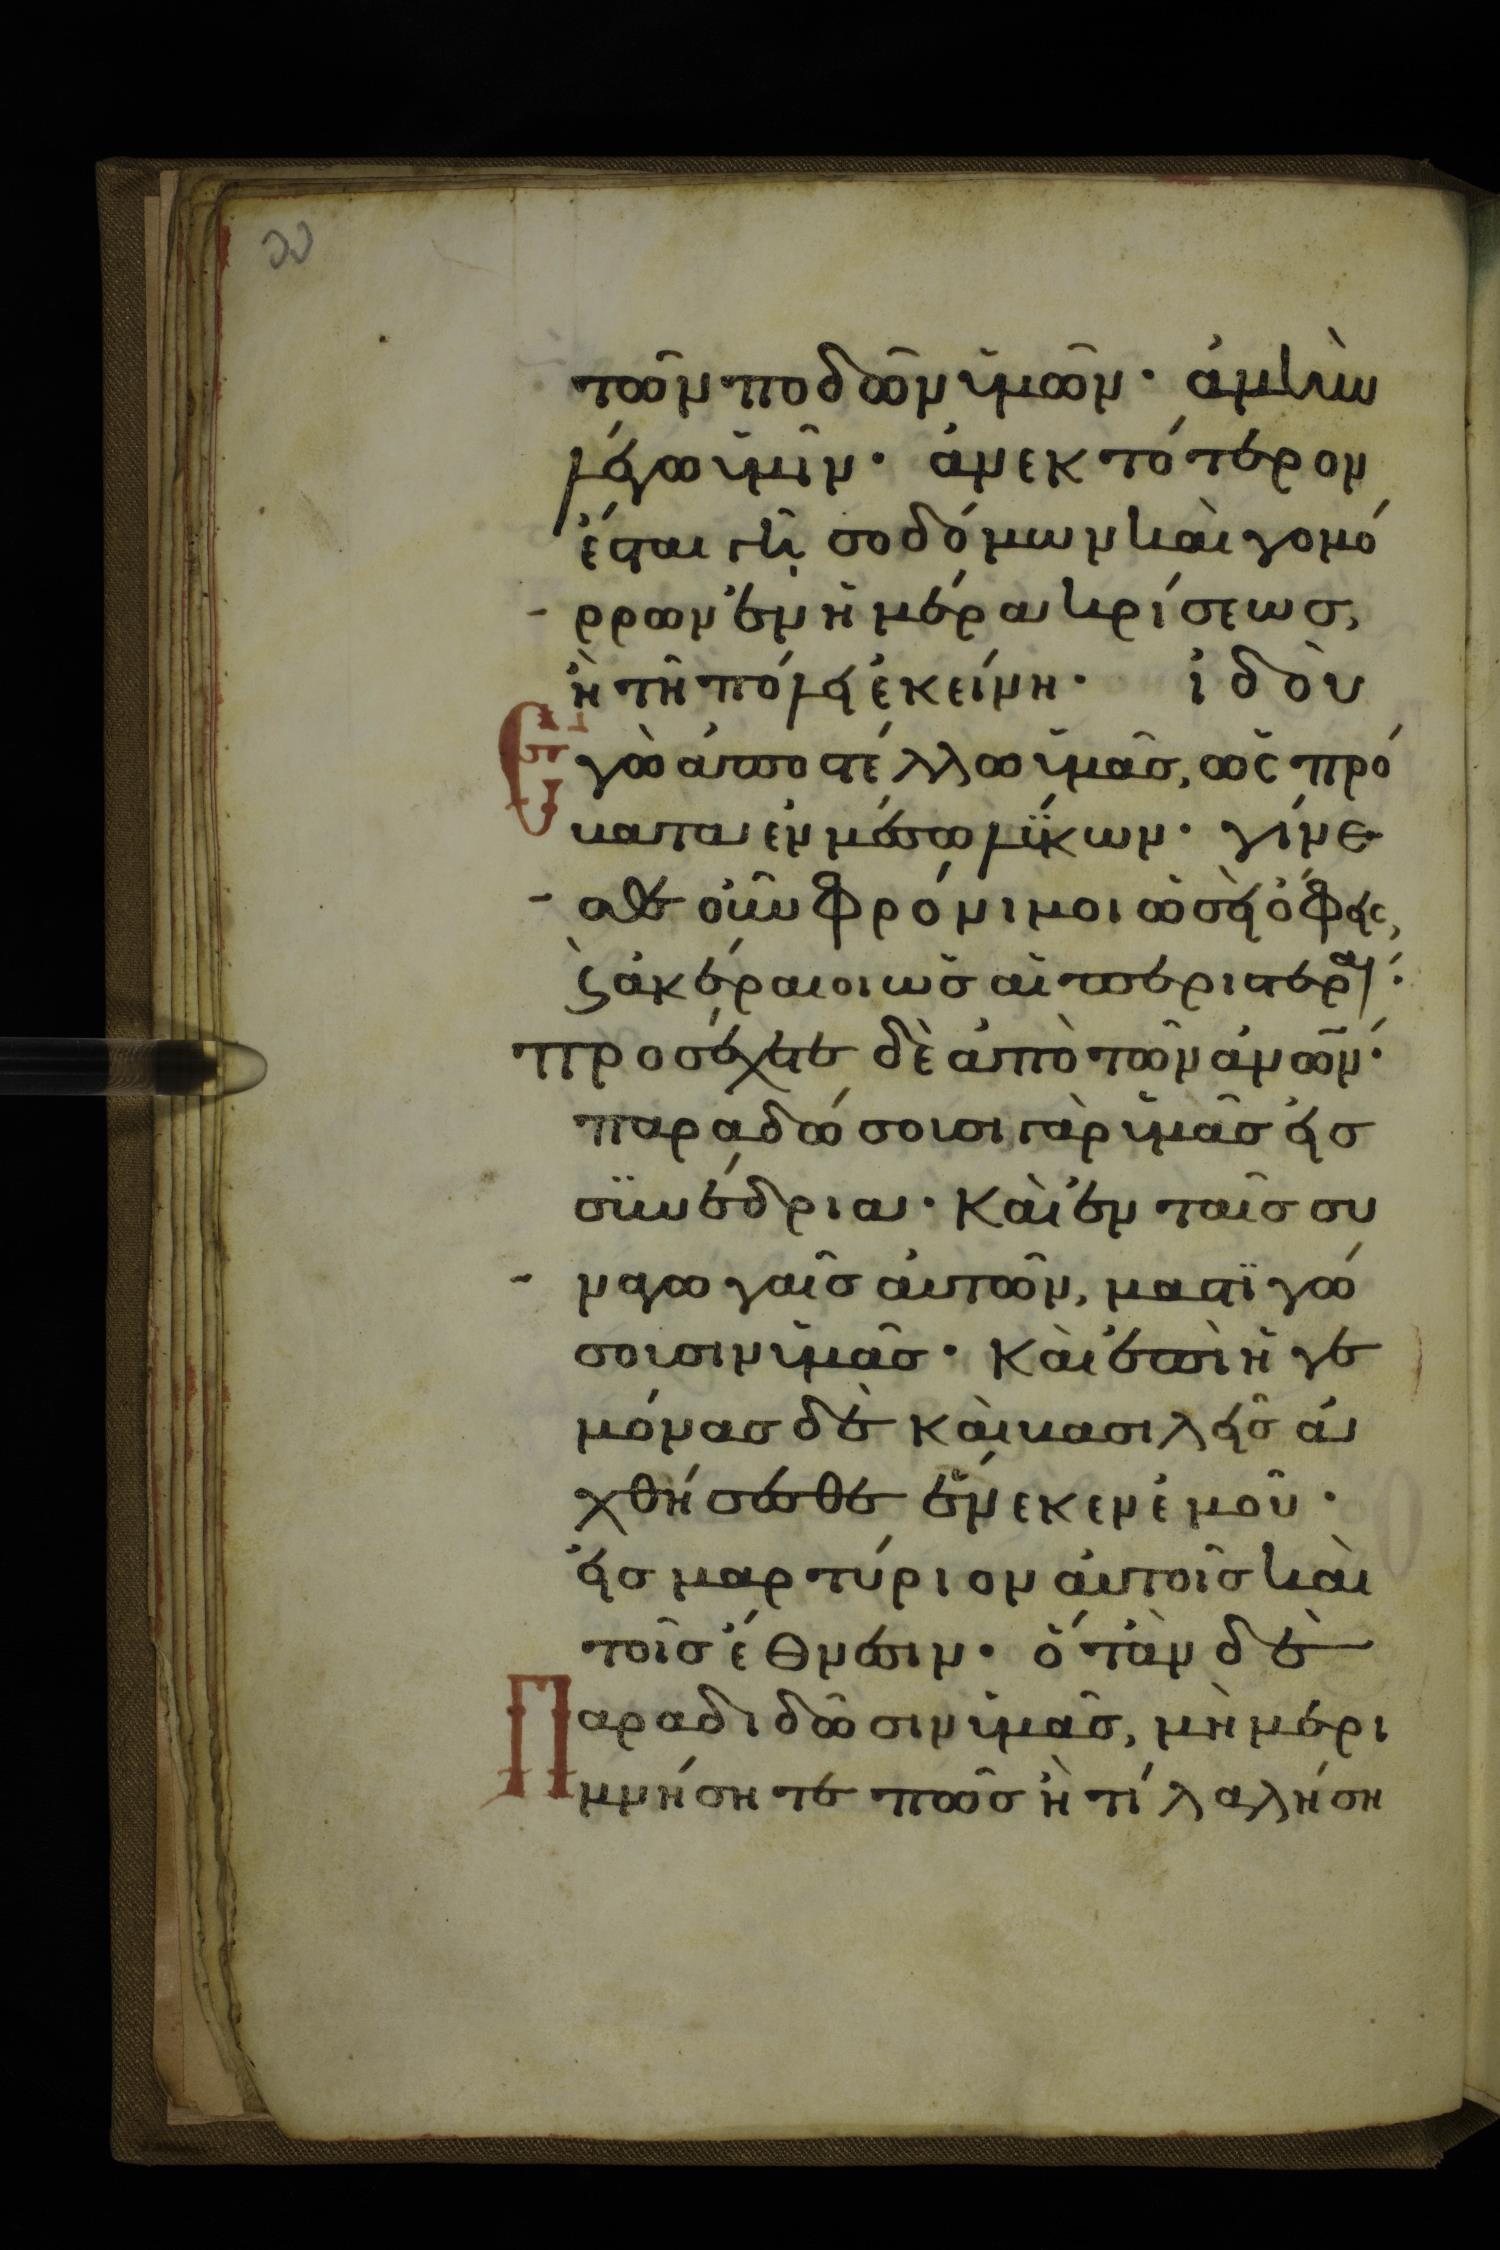 τῶν ποδῶν ὑμῶν· ἀμὴν
λέγω ὑμῖν· ἀνεκτότερον
ἔσται γῆ σοδόμων καὶ γομό
ρρων ἐν ἡμέρα κρίσεως,
ἢ τῆ πόλει ἐκείνη· ἰδοὺ
Ἐγὼ ἀποστέλλω ὑμᾶς, ὡς πρό
βατα ἐν μέσω λύκων· γίνε
σθε οὖν φρόνιμοι ὡς εἱ ὄφεις,
ϗ ἀκέραιοι ὡς αἱ περιστεραί:
προσέχετε δὲ ἀπὸ τῶν ἀνῶν·
παραδώσουσι γὰρ ὑμᾶς εἰς
συνέδρια· Καὶ ἐν ταῖς συ
ναγωγαῖς αὐτῶν, μαστιγώ
σουσιν ὑμᾶς· Καὶ ἐπὶ ἡγε
μόνας δὲ καὶ βασιλεῖς ἀ
χθήσεσθε ἕνεκεν ἐμοῦ·
εἰς μαρτύριον αὐτοῖς καὶ
τοῖς ἔθνεσιν· ὅτὰν δὲ
Παραδιδῶσιν ὑμᾶς, μὴ μερι
μνήσητε πῶς ἢ τί λαλήση